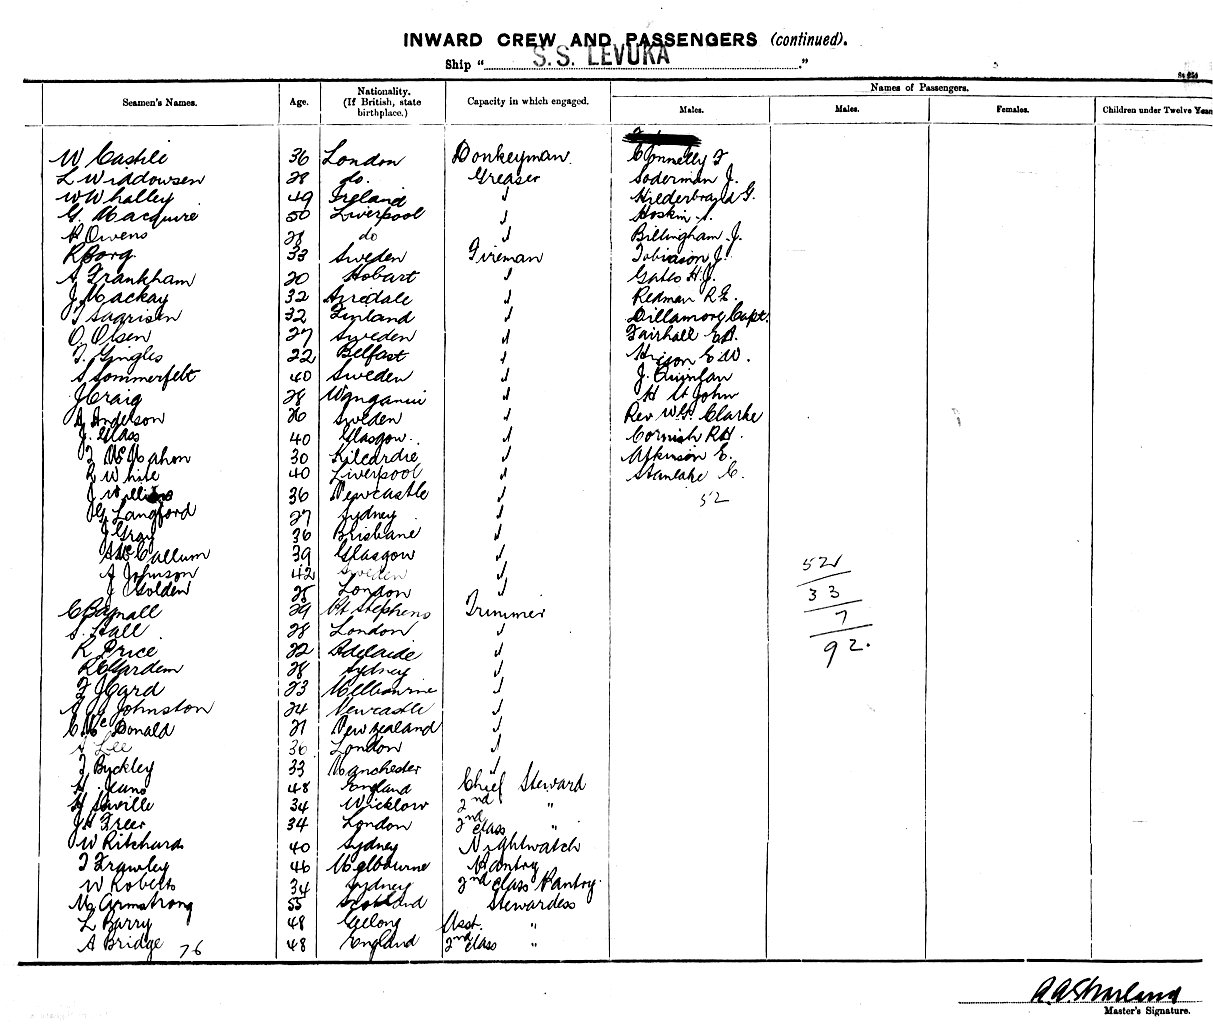 INWARD CREW AND PASSENGERS (continued).
Ship "S.S. LEVUKA"
Names of Passengers.
Seamen's Names. Age. Nationality. (If British, state birthplace.) Capacity in which engaged. Males. Males. Females. Children under Twelve Years
W Castle 36 London Donkeyman Connelly F
L Widdowsen 28 do. Greaser Soderman J.
W Whalley 49 Ireland √ Hilderbrand G.
G. Macquire 50 Liverpool √ Hoskin A.
H Owens 28 do √ Billingham J.
R Borg 33 Sweden Fireman Tobiason J.
A Frankham 20 Hobart √ Gates H J.
J Mackay 32 Airedale √ Redman R E.
T Saarisen 32 Finland √ Dillamore Capt.
O Olsen 27 Sweden √ Fairhall E A.
T. Gingles 22 Belfast √ E W.
S Sommerfelt 40 Sweden √ J. Quinlan
J Craig 28 Wanganui √ H St John
A Anderson 26 Sweden √ Rev W G. Clarke
J. Glass 40 Glasgow √ Cornish R H.
F McMahon 30 Kilcardie √ Atkinson E.
R White 40 Liverpool √ Stanlake C.
J Williams 36 Newcastle √ 52
G Langford 27 Sydney √
J Gray 36 Brisbane √
McCallum 39 Glasgow √ 52
A Johnson 42 Sweden √
J Golden 25 London √ 33
C Bagnall 29 Pt Stephens Trimmer 7
S. Hall 28 London √
R Price 22 Adelaide √ 92.
R Garden 28 Sydney √
F J Card 23 Melbourne √
Johnston 24 Newcastle √
C McDonald 21 New Zealand √
A Lee 36 London √
F Buckley 33 Manchester √
48 England Chief Steward
H Saville 34 Wicklow 2nd "
J H Freer 34 London 2nd class "
W Ritchard 40 Sydney Nightwatch
T Frawley 46 Melbourne Pantry
W Roberts 34 Sydney 2nd class Pantry.
M Armstrong 55 Scotland Stewardess
L Barry 48 Gelong Asst. "
A Bridge 76 48 England 2nd class "
Master's Signature.